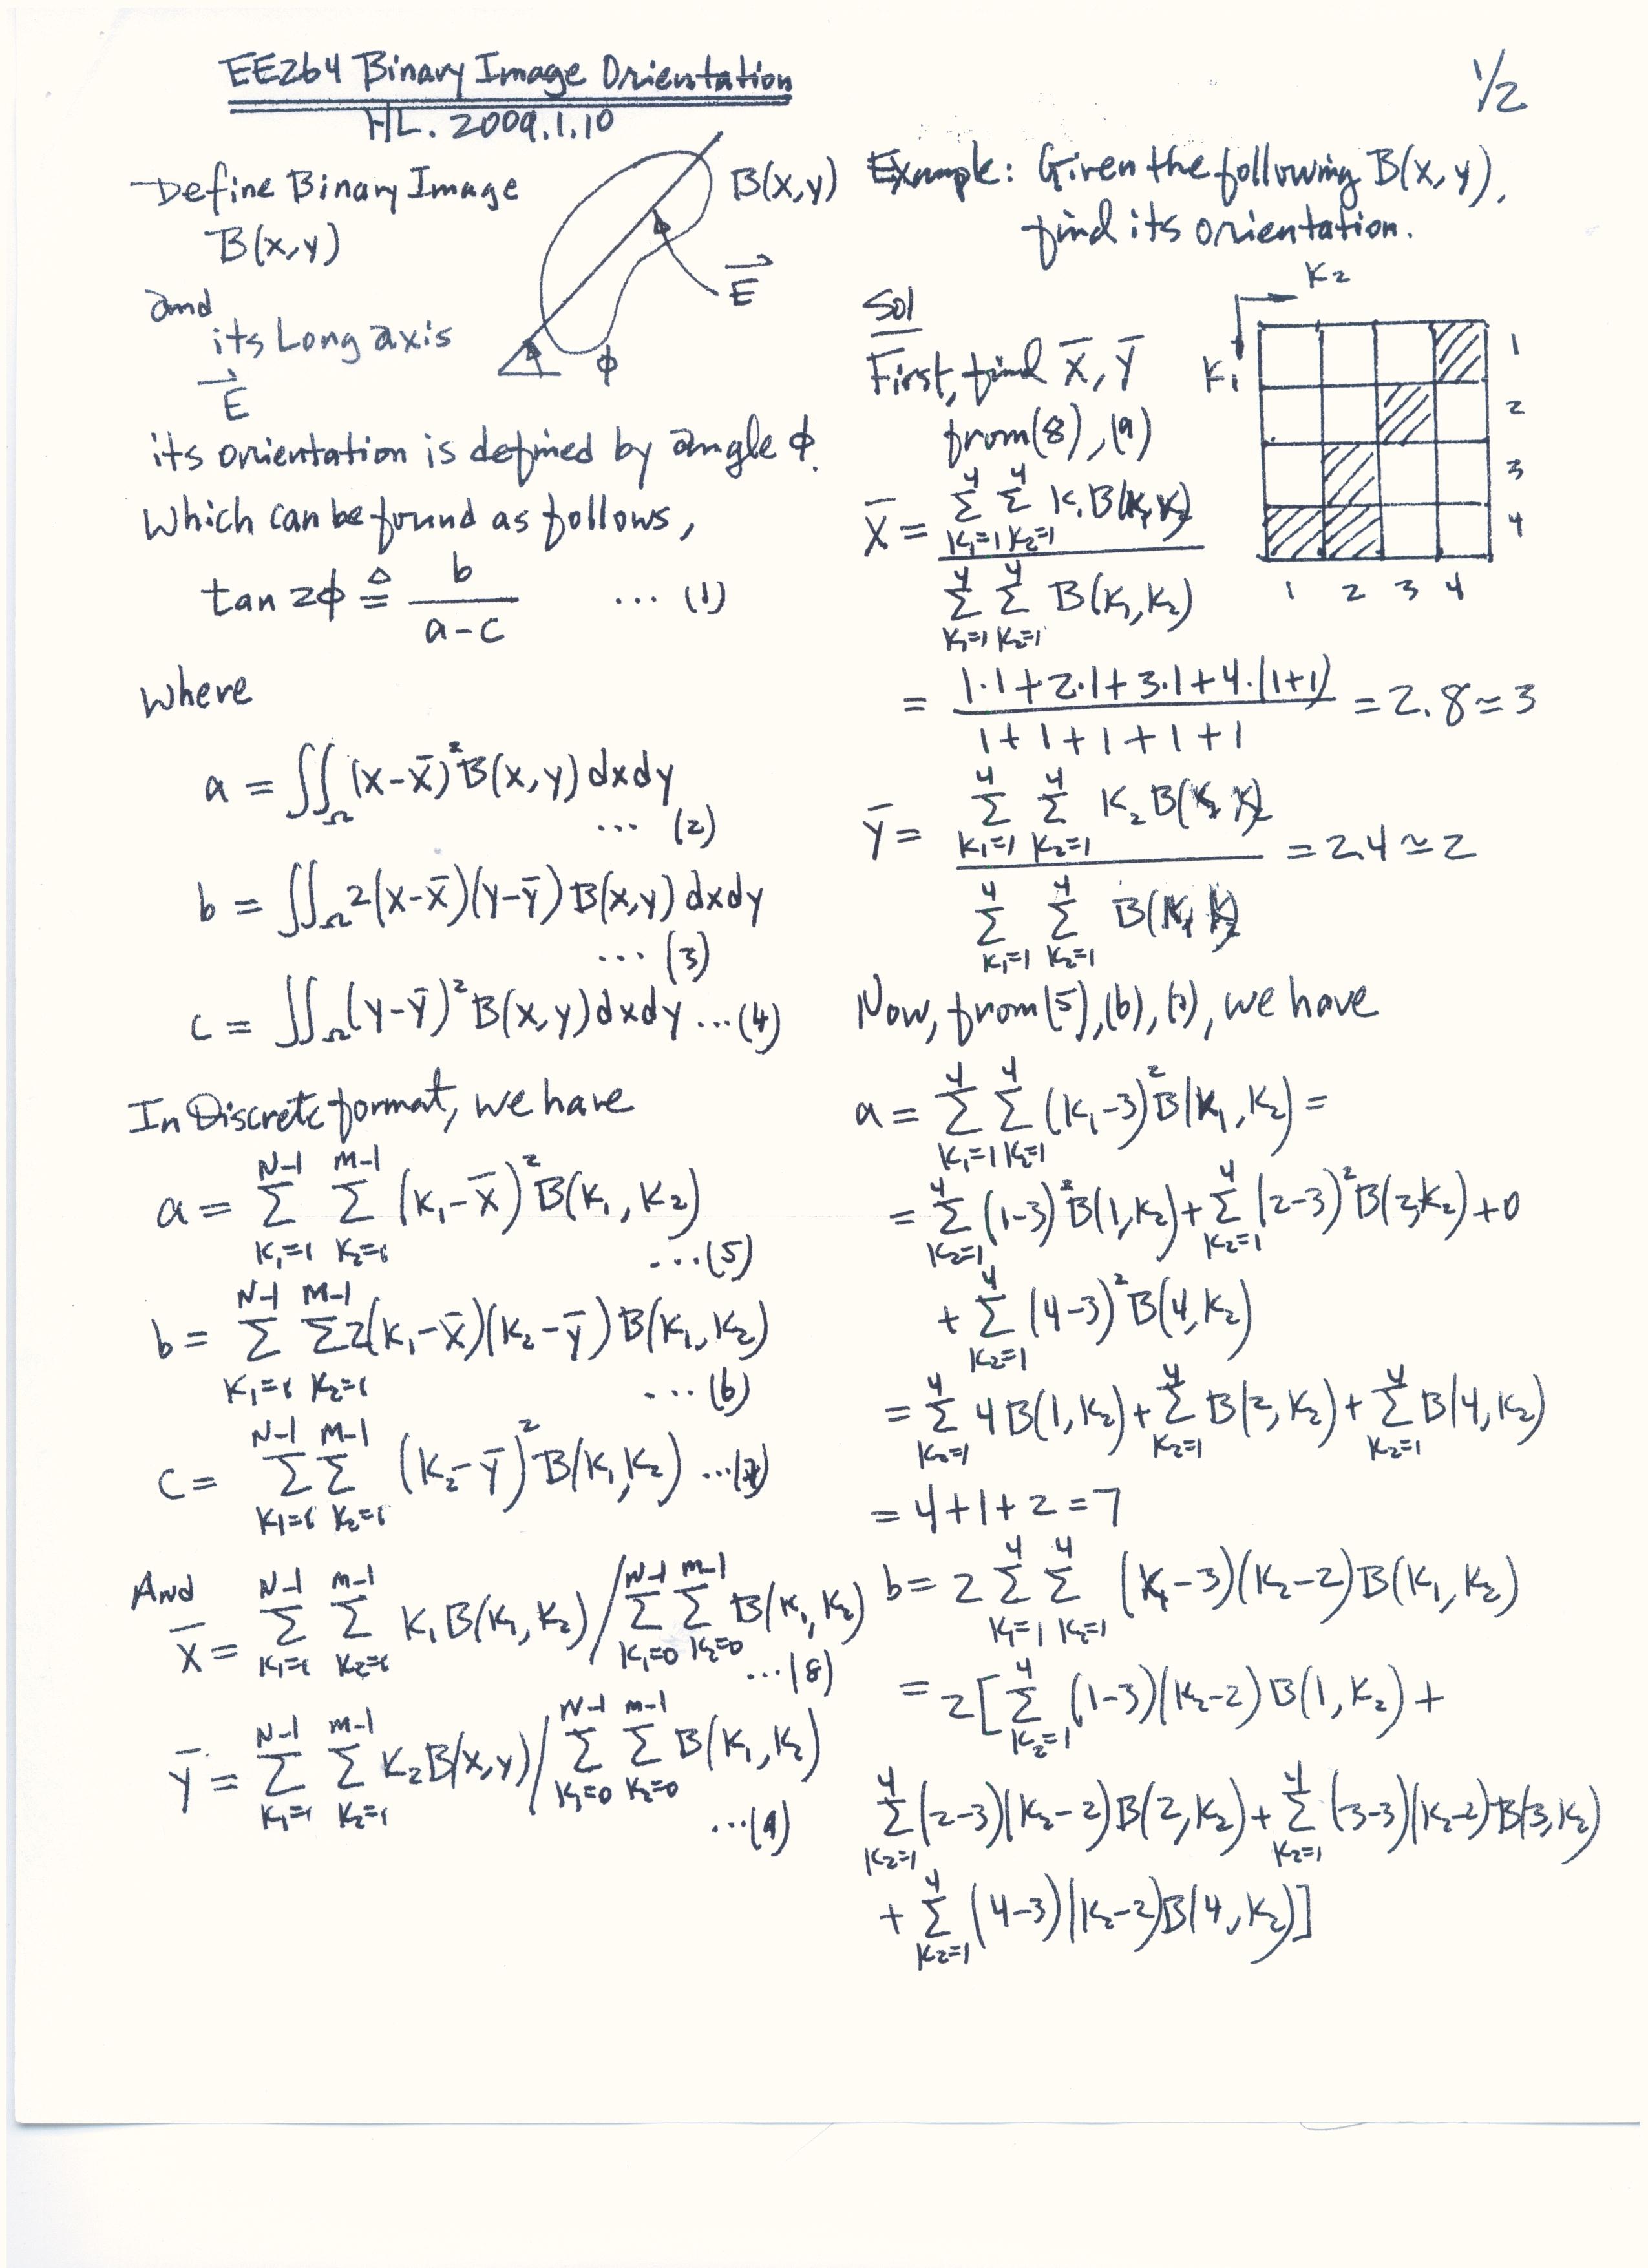 EE264 Binary Image Orientation
HL. 2009.1.10
1/2
Define Binary Image
B(x,y)
and
its Long axis
E
B(x,y)
E
ϕ
its orientation is defined by angle ϕ.
Which can be found as follows,
tan 2ϕ ≜ b / (a-c) ... (1)
Where
a = ∬Ω (x-x̄)² B(x,y) dxdy
... (2)
b = ∬Ω 2(x-x̄)(y-ȳ) B(x,y) dxdy
... (3)
c = ∬Ω (y-ȳ)² B(x,y) dxdy ... (4)
In Discrete format, we have
a = Σ_{K1=1}^{N-1} Σ_{K2=1}^{M-1} (K1-x̄)² B(K1, K2)
... (5)
b = Σ_{K1=1}^{N-1} Σ_{K2=1}^{M-1} 2(K1-x̄)(K2-ȳ) B(K1, K2)
... (6)
c = Σ_{K1=1}^{N-1} Σ_{K2=1}^{M-1} (K2-ȳ)² B(K1, K2) ... (7)
And
x̄ = Σ_{K1=1}^{N-1} Σ_{K2=1}^{M-1} K1 B(K1, K2) / Σ_{K1=0}^{N-1} Σ_{K2=0}^{M-1} B(K1, K2)
... (8)
ȳ = Σ_{K1=1}^{N-1} Σ_{K2=1}^{M-1} K2 B(x,y) / Σ_{K1=0}^{N-1} Σ_{K2=0}^{M-1} B(K1, K2)
... (9)
Example: Given the following B(x,y),
find its orientation.
Sol
First, find x̄, ȳ
from (8), (9)
K2
K1
1
2
3
4
1 2 3 4
x̄ = Σ_{K1=1}^{4} Σ_{K2=1}^{4} K1 B(K1, K2) / Σ_{K1=1}^{4} Σ_{K2=1}^{4} B(K1, K2)
= (1·1+2·1+3·1+4·(1+1)) / (1+1+1+1+1) = 2.8 ≃ 3
ȳ = Σ_{K1=1}^{4} Σ_{K2=1}^{4} K2 B(K1, K2) / Σ_{K1=1}^{4} Σ_{K2=1}^{4} B(K1, K2) = 2.4 ≃ 2
Now, from (5), (6), (7), we have
a = Σ_{K1=1}^{4} Σ_{K2=1}^{4} (K1-3)² B(K1, K2) =
= Σ_{K2=1}^{4} (1-3)² B(1,K2) + Σ_{K2=1}^{4} (2-3)² B(2,K2) + 0
+ Σ_{K2=1}^{4} (4-3)² B(4,K2)
= Σ_{K2=1}^{4} 4 B(1,K2) + Σ_{K2=1}^{4} B(2,K2) + Σ_{K2=1}^{4} B(4,K2)
= 4+1+2 = 7
b = 2 Σ_{K1=1}^{4} Σ_{K2=1}^{4} (K1-3)(K2-2) B(K1, K2)
= 2[ Σ_{K2=1}^{4} (1-3)(K2-2) B(1,K2) +
Σ_{K2=1}^{4} (2-3)(K2-2) B(2,K2) + Σ_{K2=1}^{4} (3-3)(K2-2) B(3,K2)
+ Σ_{K2=1}^{4} (4-3)(K2-2) B(4,K2) ]